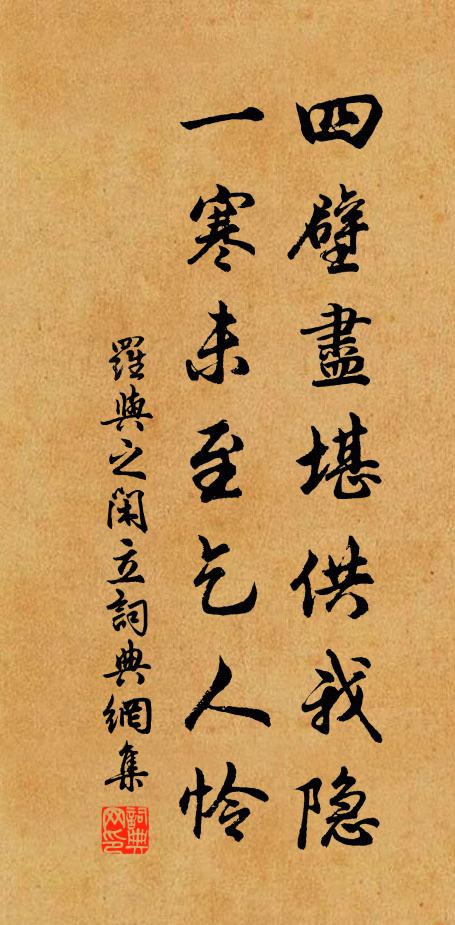 四壁盡堪供我隐
一寒未至乞人怜
羅與之閑立詞典網集
詞典网印